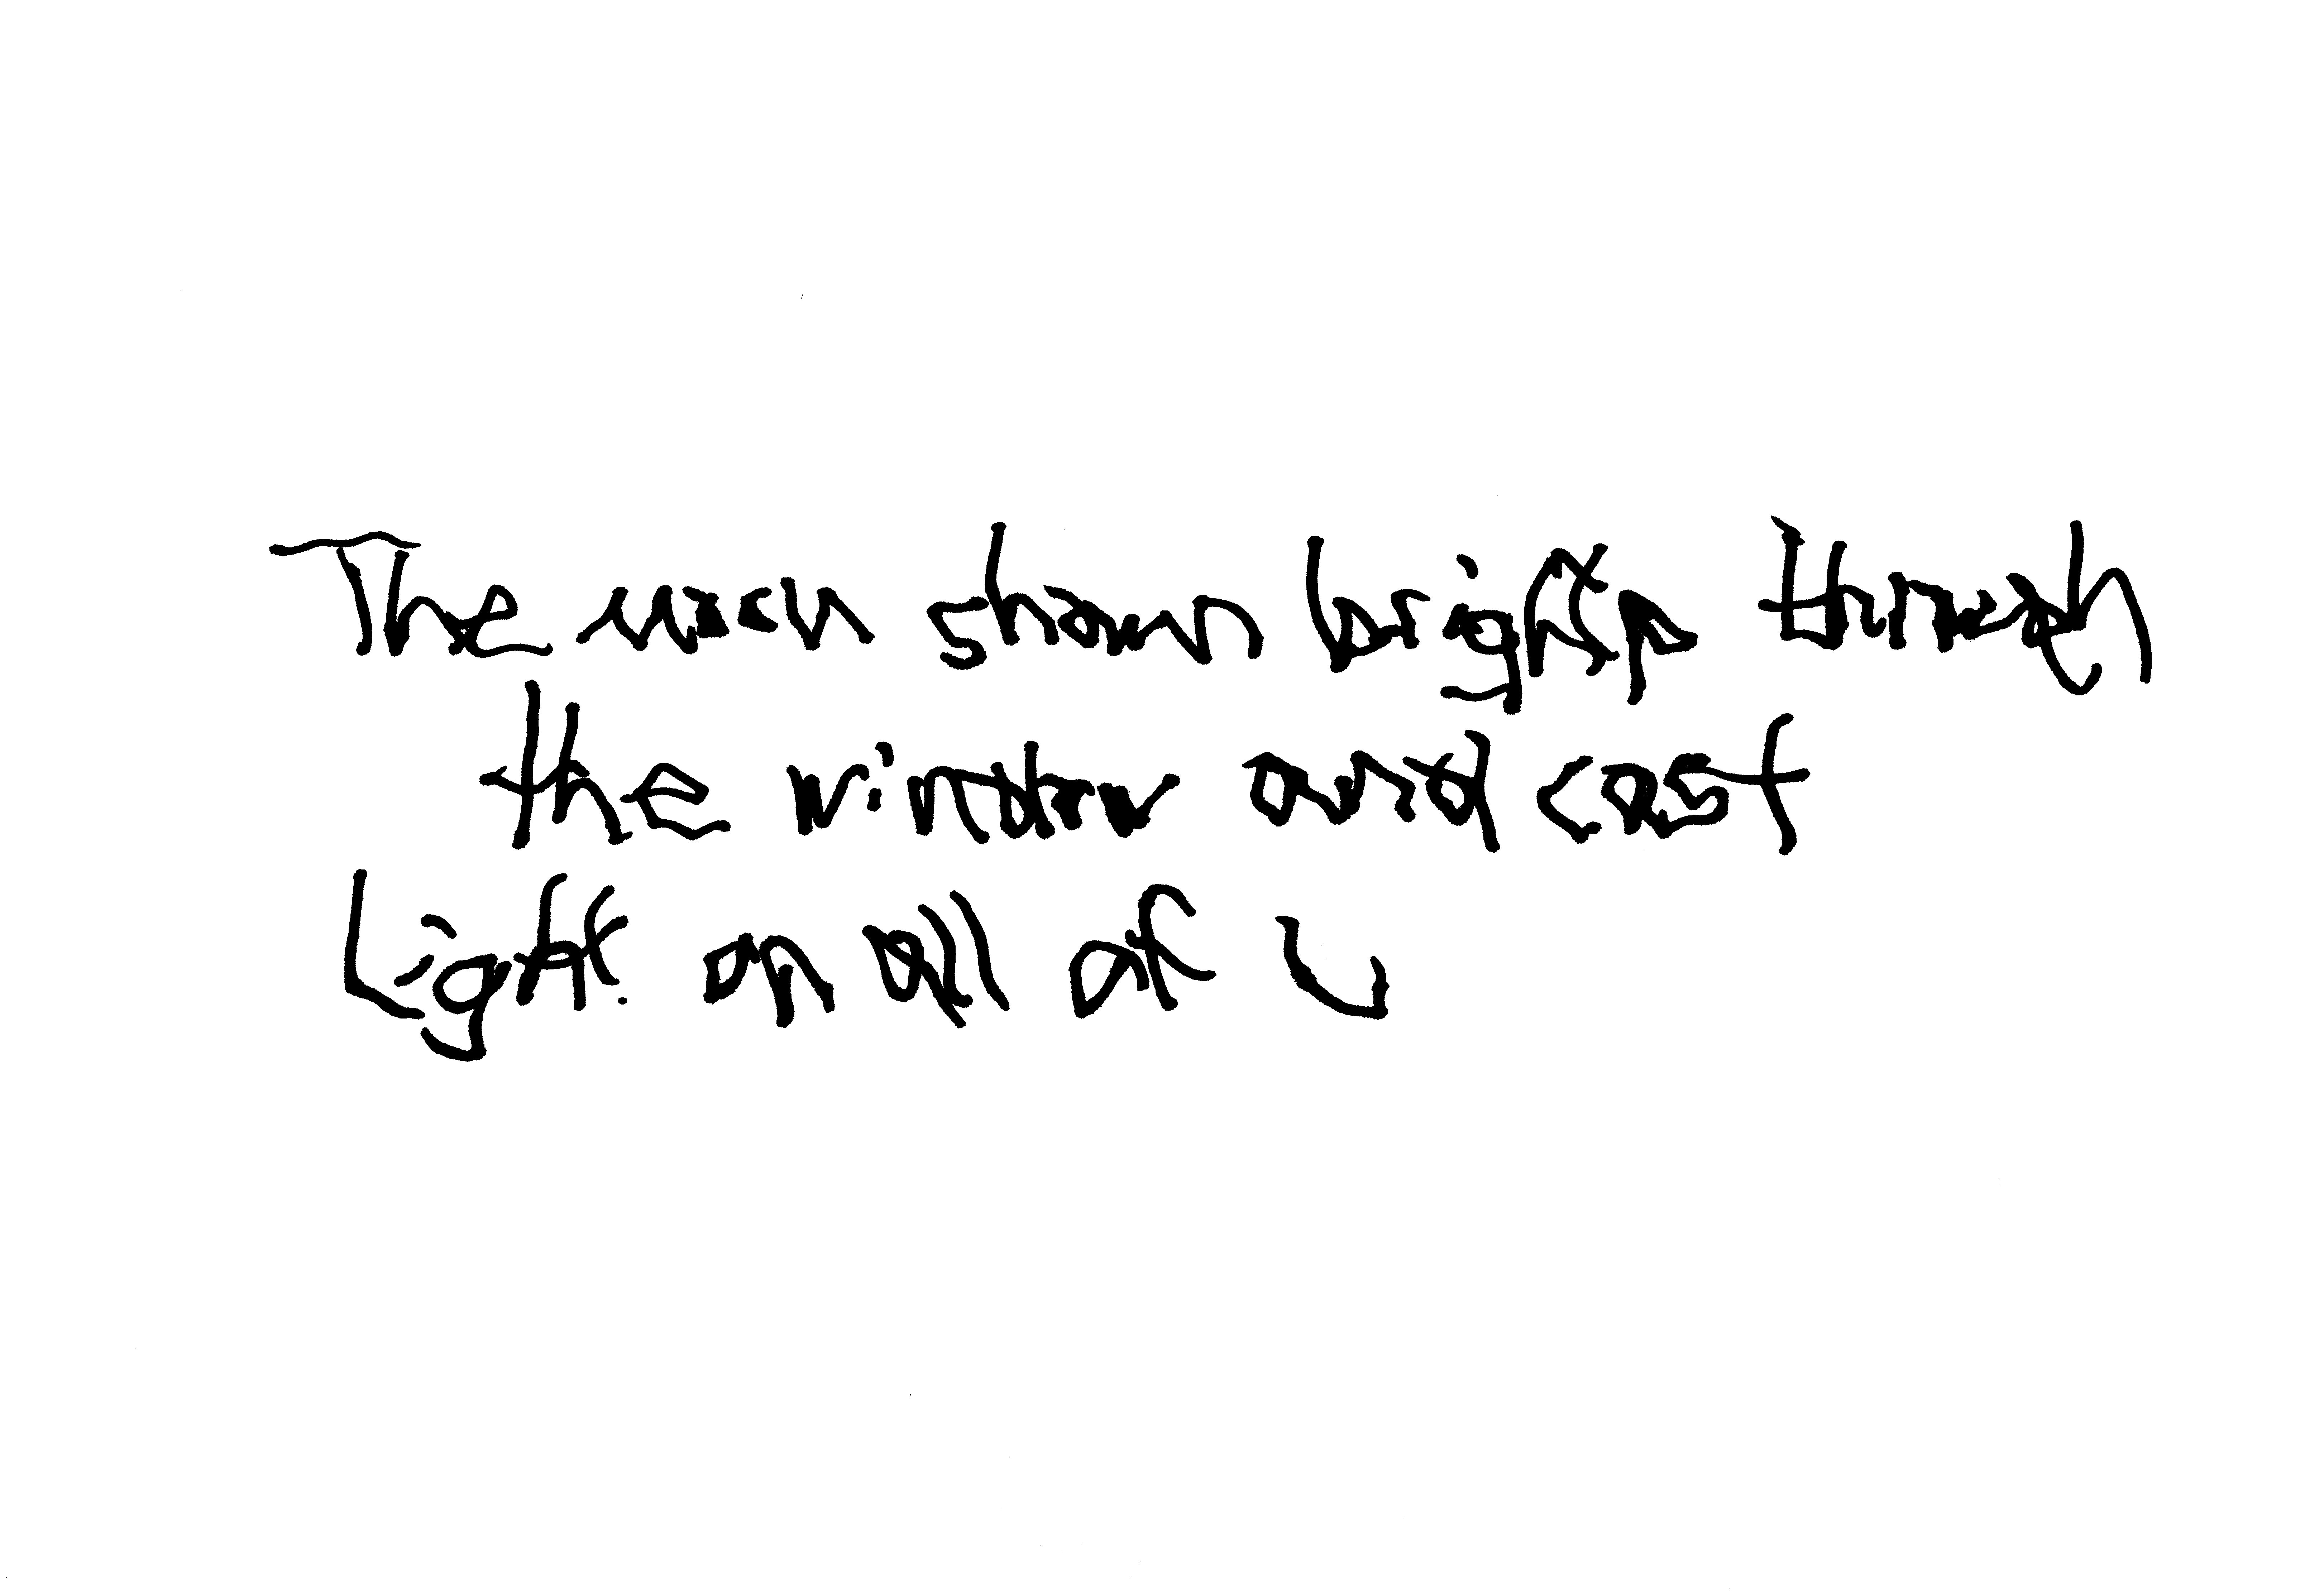 The moon shown brightly through
the window and cast
Light on all of